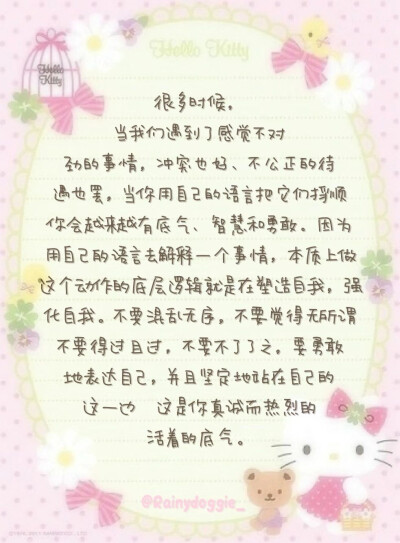 Hello Kitty
Hello
Kitty
很多时候，
当我们遇到了感觉不对
劲的事情，冲突也好、不公正的待
遇也罢，当你用自己的语言把它们捋顺
你会越来越有底气、智慧和勇敢。因为
用自己的语言去解释一个事情，本质上做
这个动作的底层逻辑就是在塑造自我，强
化自我。不要混乱无序，不要觉得无所谓
不要得过且过，不要不了了之，要勇敢
地表达自己，并且坚定地站在自己的
这一边 这是你真诚而热烈的
活着的底气。
@Rainydoggie_